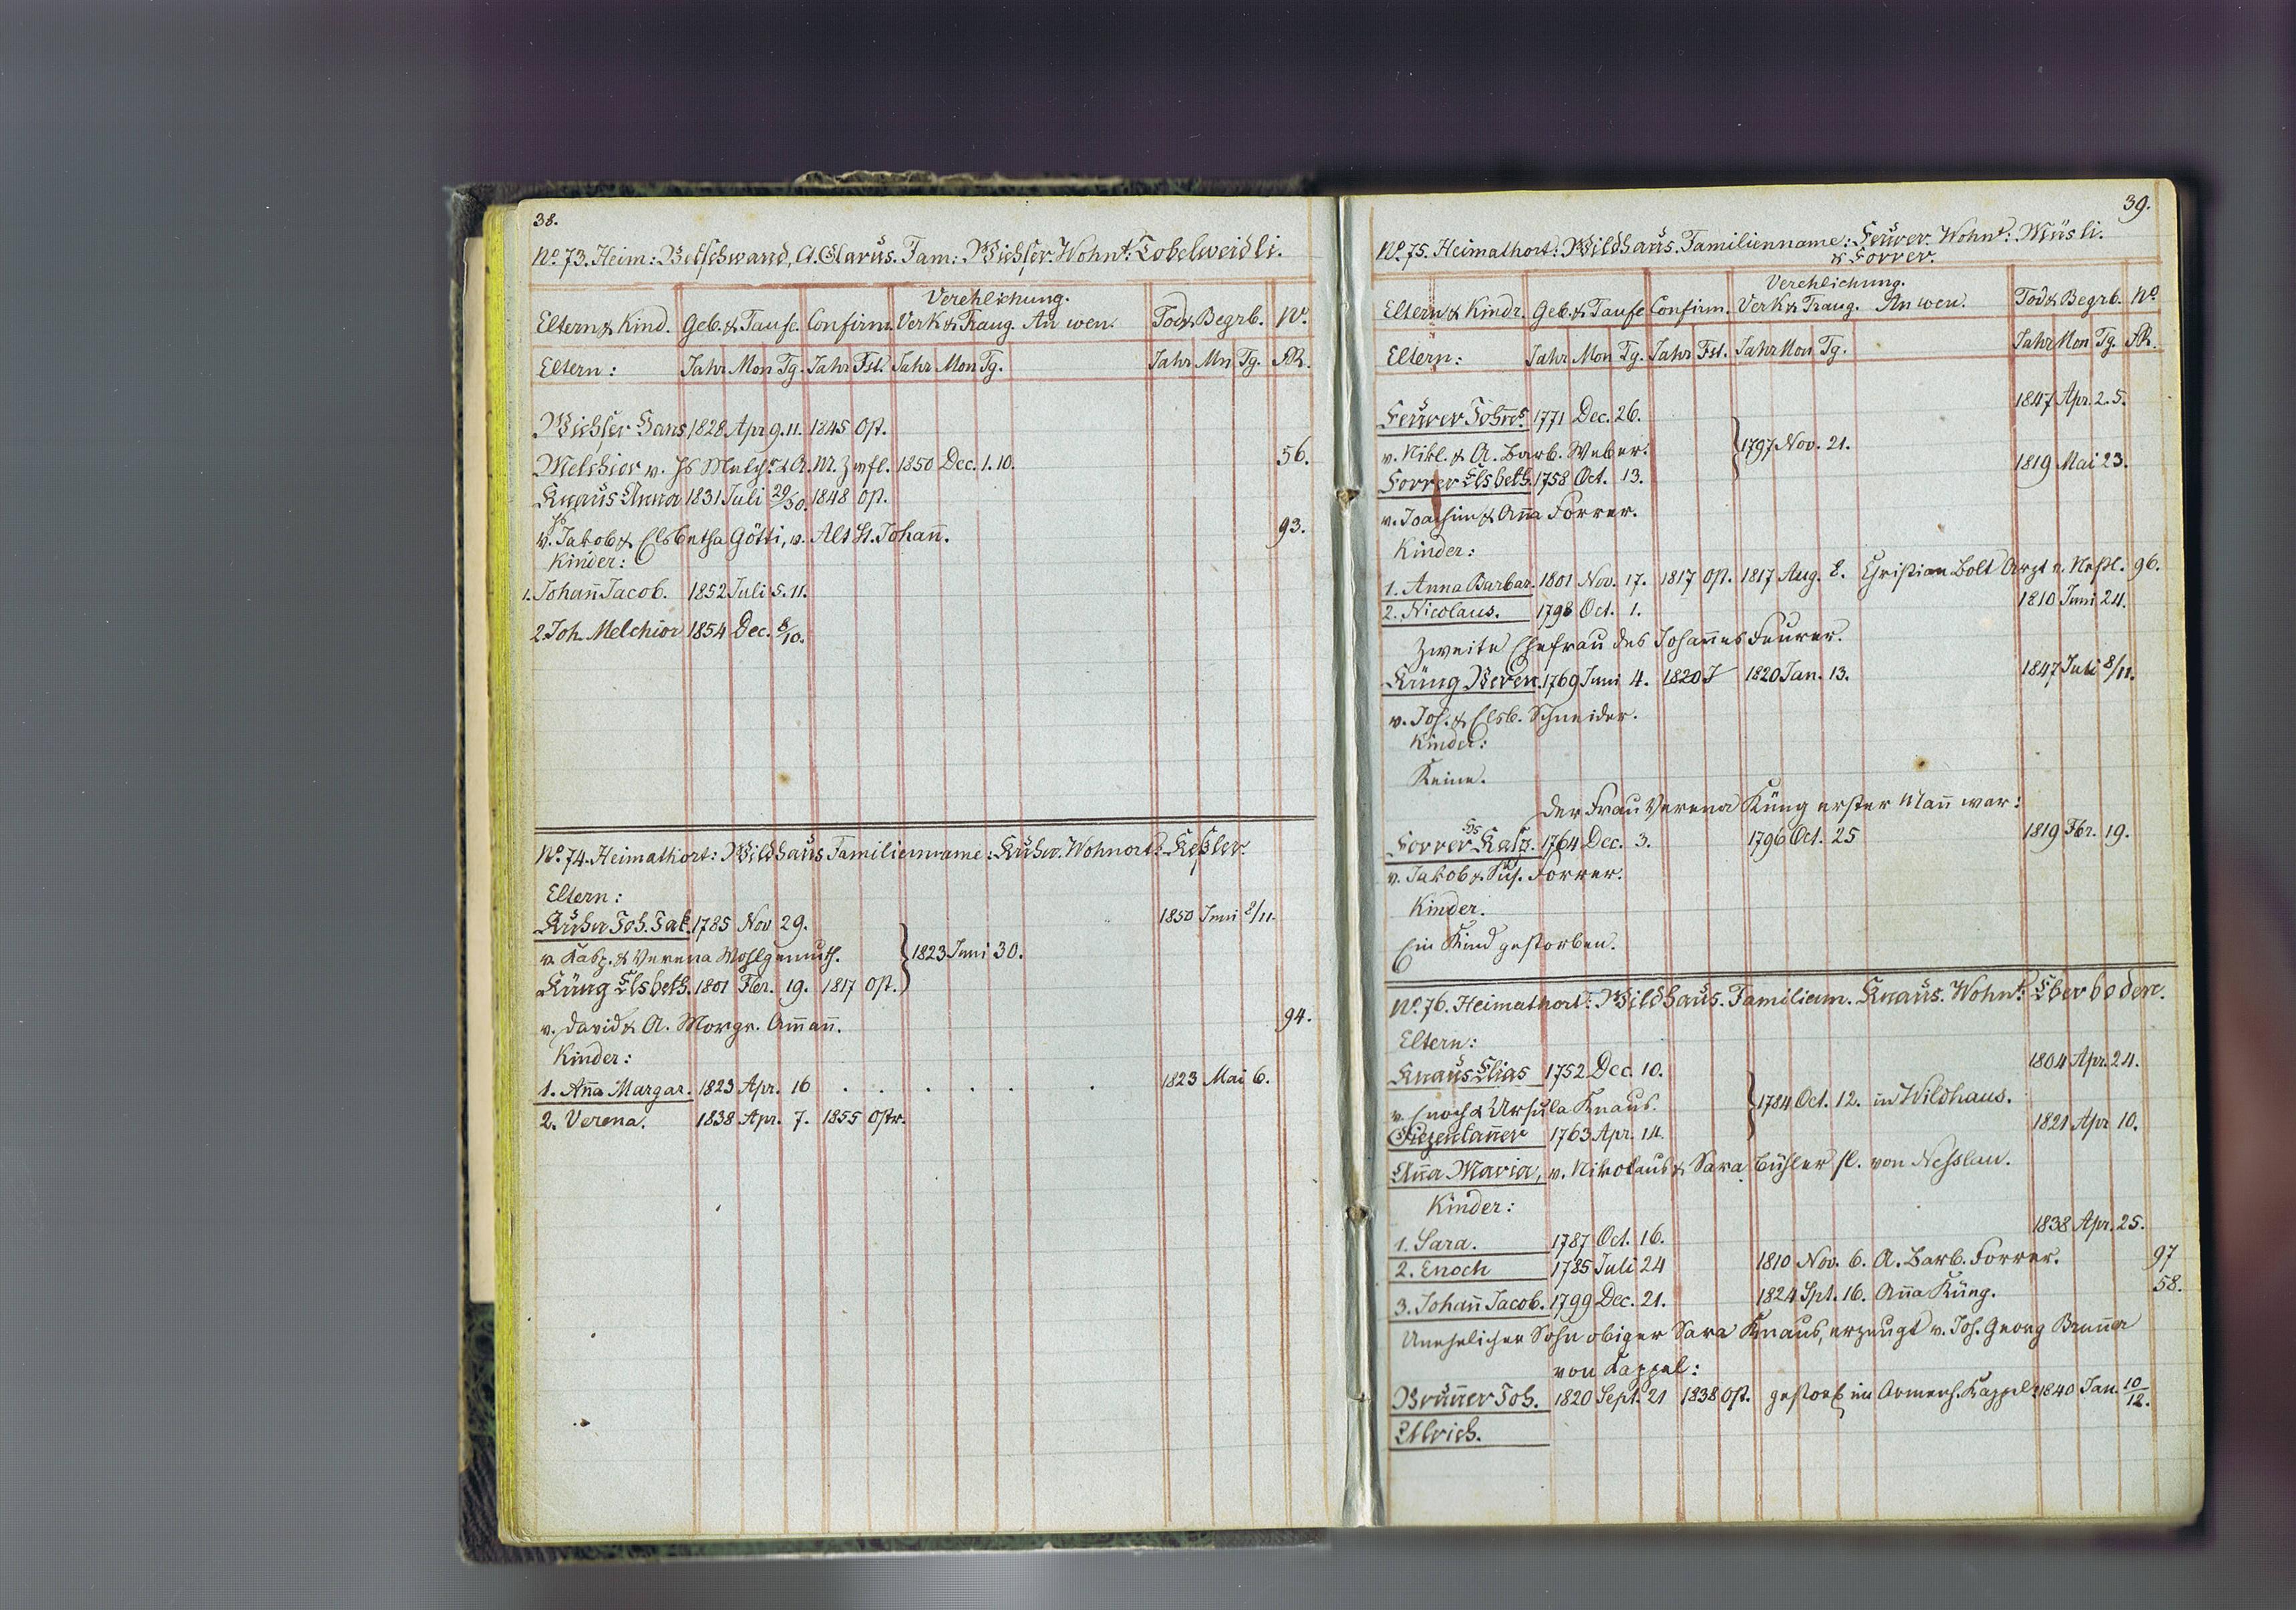 38.
No. 73. Heim: Betschwand, C. Glarus. Fam: Wichser. Wohnt: Tobelweidli.
Verehlichung.
Eltern & Kind. Geb. & Taufe. Confirm. Verk & Traug. An wen. Tod & Begrb. No.
Eltern: Jahr Mon Tg. Jahr Fst. Jahr Mon Tg. Jahr Mn Tg. FR.
Wichser Hans 1828 Apr 9. 11. 1845 Ost.
Melchior v. Hs Melch. & A. M. Zwfl. 1850 Dec. 1. 10. 56.
Knaus Anna 1831 Juli 29/30. 1848 Ost.
v. Jakob & Elsbetha Götti, v. Alt St. Johañ. 93.
Kinder:
1. Johañ Jacob. 1852 Juli 5. 11.
2. Joh. Melchior 1854 Dec. 8/10.
No. 74. Heimathort: Wildhaus Familienname: Kuhn. Wohnort: Keßler.
Eltern:
Kuhn Joh. Jak. 1785 Nov 29. 1850 Juni 8/11.
v. Kasp. & Verena Wohlgemuth. 1823 Juni 30.
Küng Elsbeth. 1801 Fbr. 19. 1817 Ost.
v. David & A. Margr. Amañ. 94.
Kinder:
1. Aña Margar. 1823 Apr. 16 . . . . . . 1823 Mai 6.
2. Verena. 1838 Apr. 7. 1855 Ostr.
39.
No. 75. Heimathort: Wildhaus. Familienname: Feurer. Wohnt: Müsli.
& Forrer.
Verehlichung.
Eltern & Kindr. Geb. & Taufe Confirm. Verk & Traug. An wen. Tod & Begrb. No
Eltern: Jahr Mon Tg. Jahr Fst. Jahr Mon Tg. Jahr Mon Tg. FR.
Feurer Johñs. 1771 Dec. 26. 1847 Apr. 2. 5.
v. Nikl. & A. Barb. Weber. 1797 Nov. 21.
Forrer Elsbeth. 1758 Oct. 13. 1819 Mai 23.
v. Joachim & Aña Forrer.
Kinder:
1. Anna Barbar. 1801 Nov. 17. 1817 Ost. 1817 Aug. 8. Christian Bolt Arzt v. Neßl. 96.
2. Nicolaus. 1798 Oct. 1. 1810 Juni 24.
Zweite Ehefrau des Johañes Feurer.
Küng Veren. 1769 Juni 4. 1820 J 1820 Jan. 13. 1847 Juli 8/11.
v. Jos. & Elsb. Schneider.
Kinder:
Keine.
Der Frau Verena Küng erster Mañ war:
Forrer Hs Kasp. 1764 Dec. 3. 1796 Oct. 25 1819 Fbr. 19.
v. Jakob & Sus. Forrer.
Kinder.
Ein Kind gestorben.
No. 76. Heimathort: Wildhaus. Familienn. Knaus. Wohnt: Überboden.
Eltern:
Knaus Elias 1752 Dec. 10. 1804 Apr. 24.
v. Enoch & Ursula Knaus. 1784 Oct. 12. in Wildhaus.
Giezentañer 1763 Apr. 14. 1821 Apr 10.
Aña Maria, v. Nikolaus & Sara Bühler sl. von Nesslau.
Kinder:
1. Sara. 1787 Oct. 16. 1838 Apr. 25.
2. Enoch 1785 Juli 24 1810 Nov. 6. A. Barb. Forrer. 97
3. Johañ Jacob. 1799 Dec. 21. 1824 Spt. 16. Aña Küng. 58.
Unehelicher Sohn obiger Sara Knaus, erzeugt v. Joh. Georg Bruñer
von Kappel:
Bruñer Joh. 1820 Sept. 21 1838 Ost. gestorb im Armenh. Kappel: 1840 Jan. 10/12.
Ulrich.